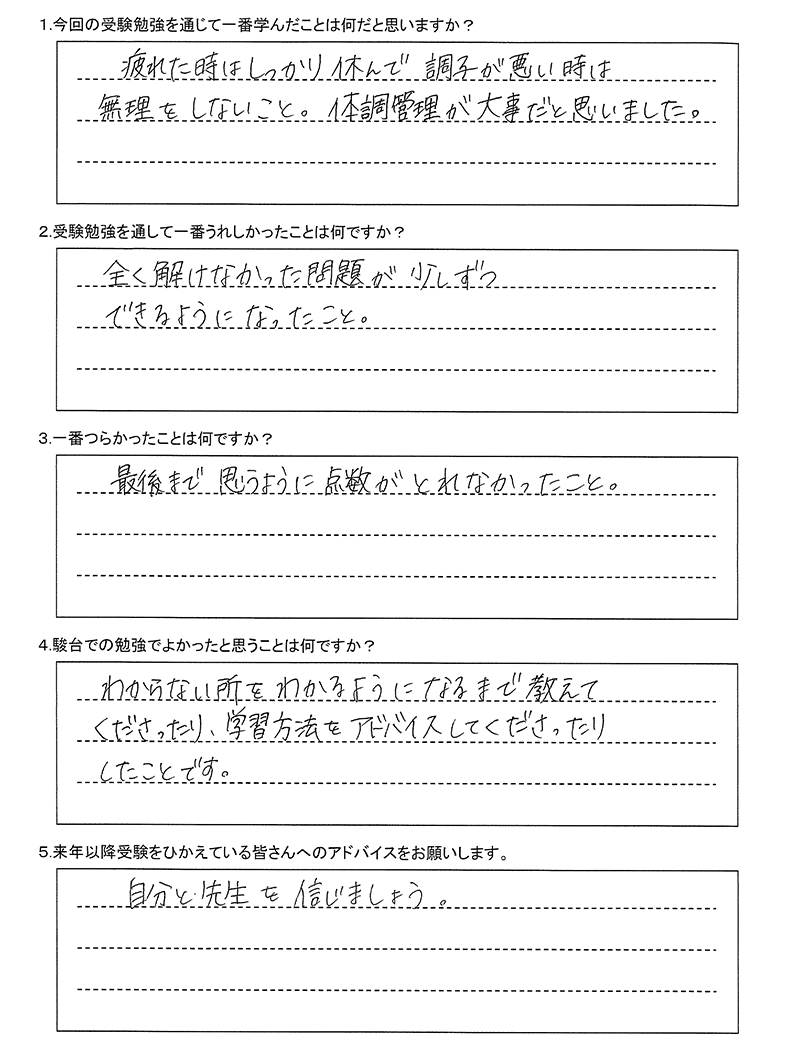 1.今回の受験勉強を通じて一番学んだことは何だと思いますか？
疲れた時はしっかり休んで調子が悪い時は
無理をしないこと。体調管理が大事だと思いました。
2.受験勉強を通して一番うれしかったことは何ですか？
全く解けなかった問題が少しずつ
できるようになったこと。
3.一番つらかったことは何ですか？
最後まで思うように点数がとれなかったこと。
4.駿台での勉強でよかったと思うことは何ですか？
わからない所をわかるようになるまで教えて
くださったり、学習方法をアドバイスしてくださったり
したことです。
5.来年以降受験をひかえている皆さんへのアドバイスをお願いします。
自分と先生を信じましょう。